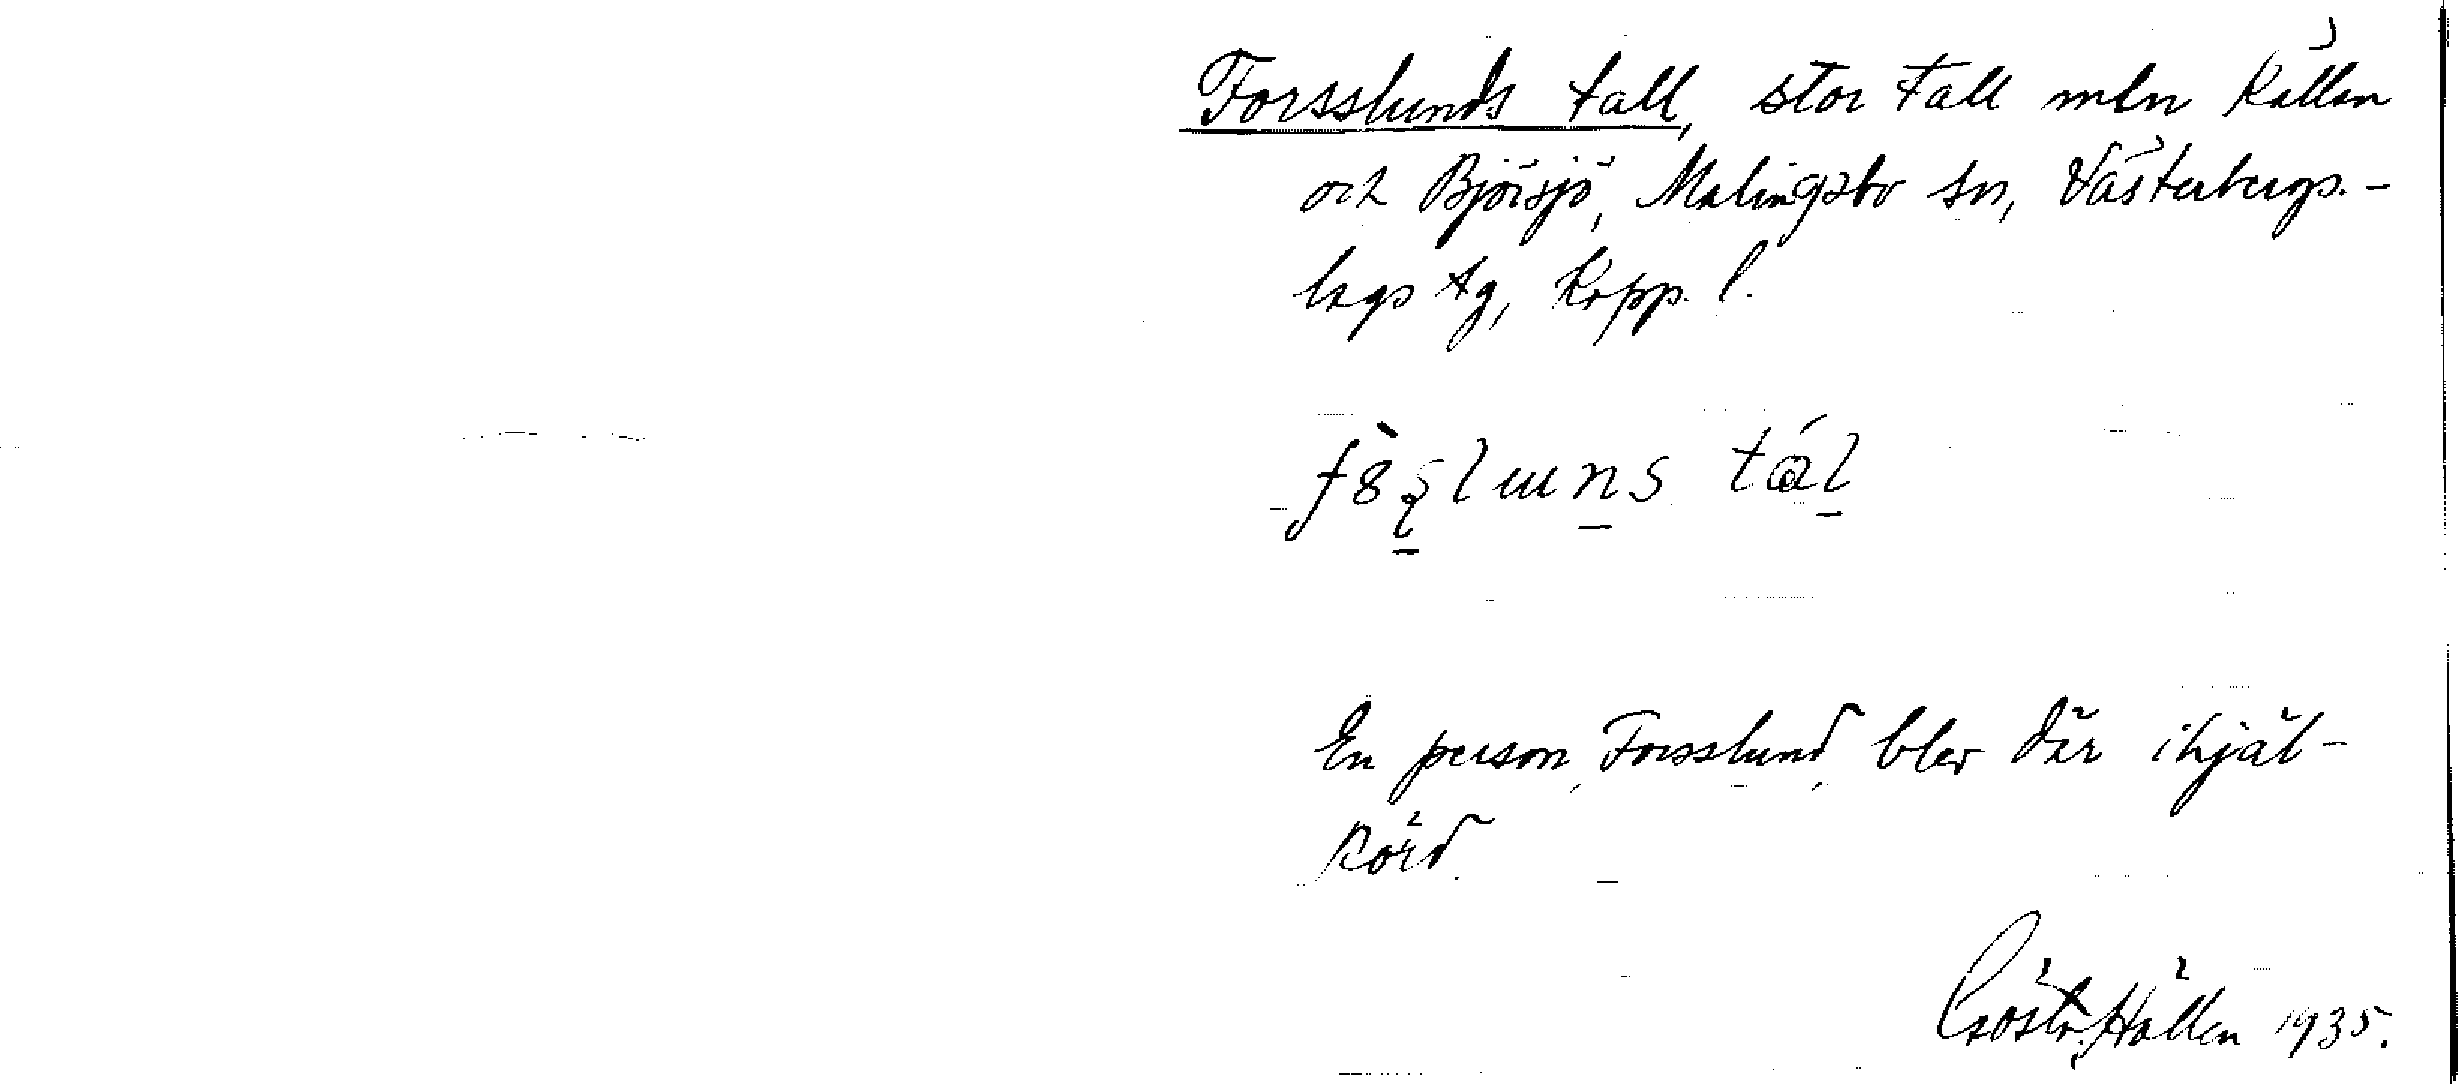 Forsslunds tall, stor tall mln Källan
och Björsjö, Malingsbo sn, Västerbergs-
lags tg, Kopp. l.
En person, Forsslund, blev där ihjäl-
körd.
Gösta Hallén 1935.